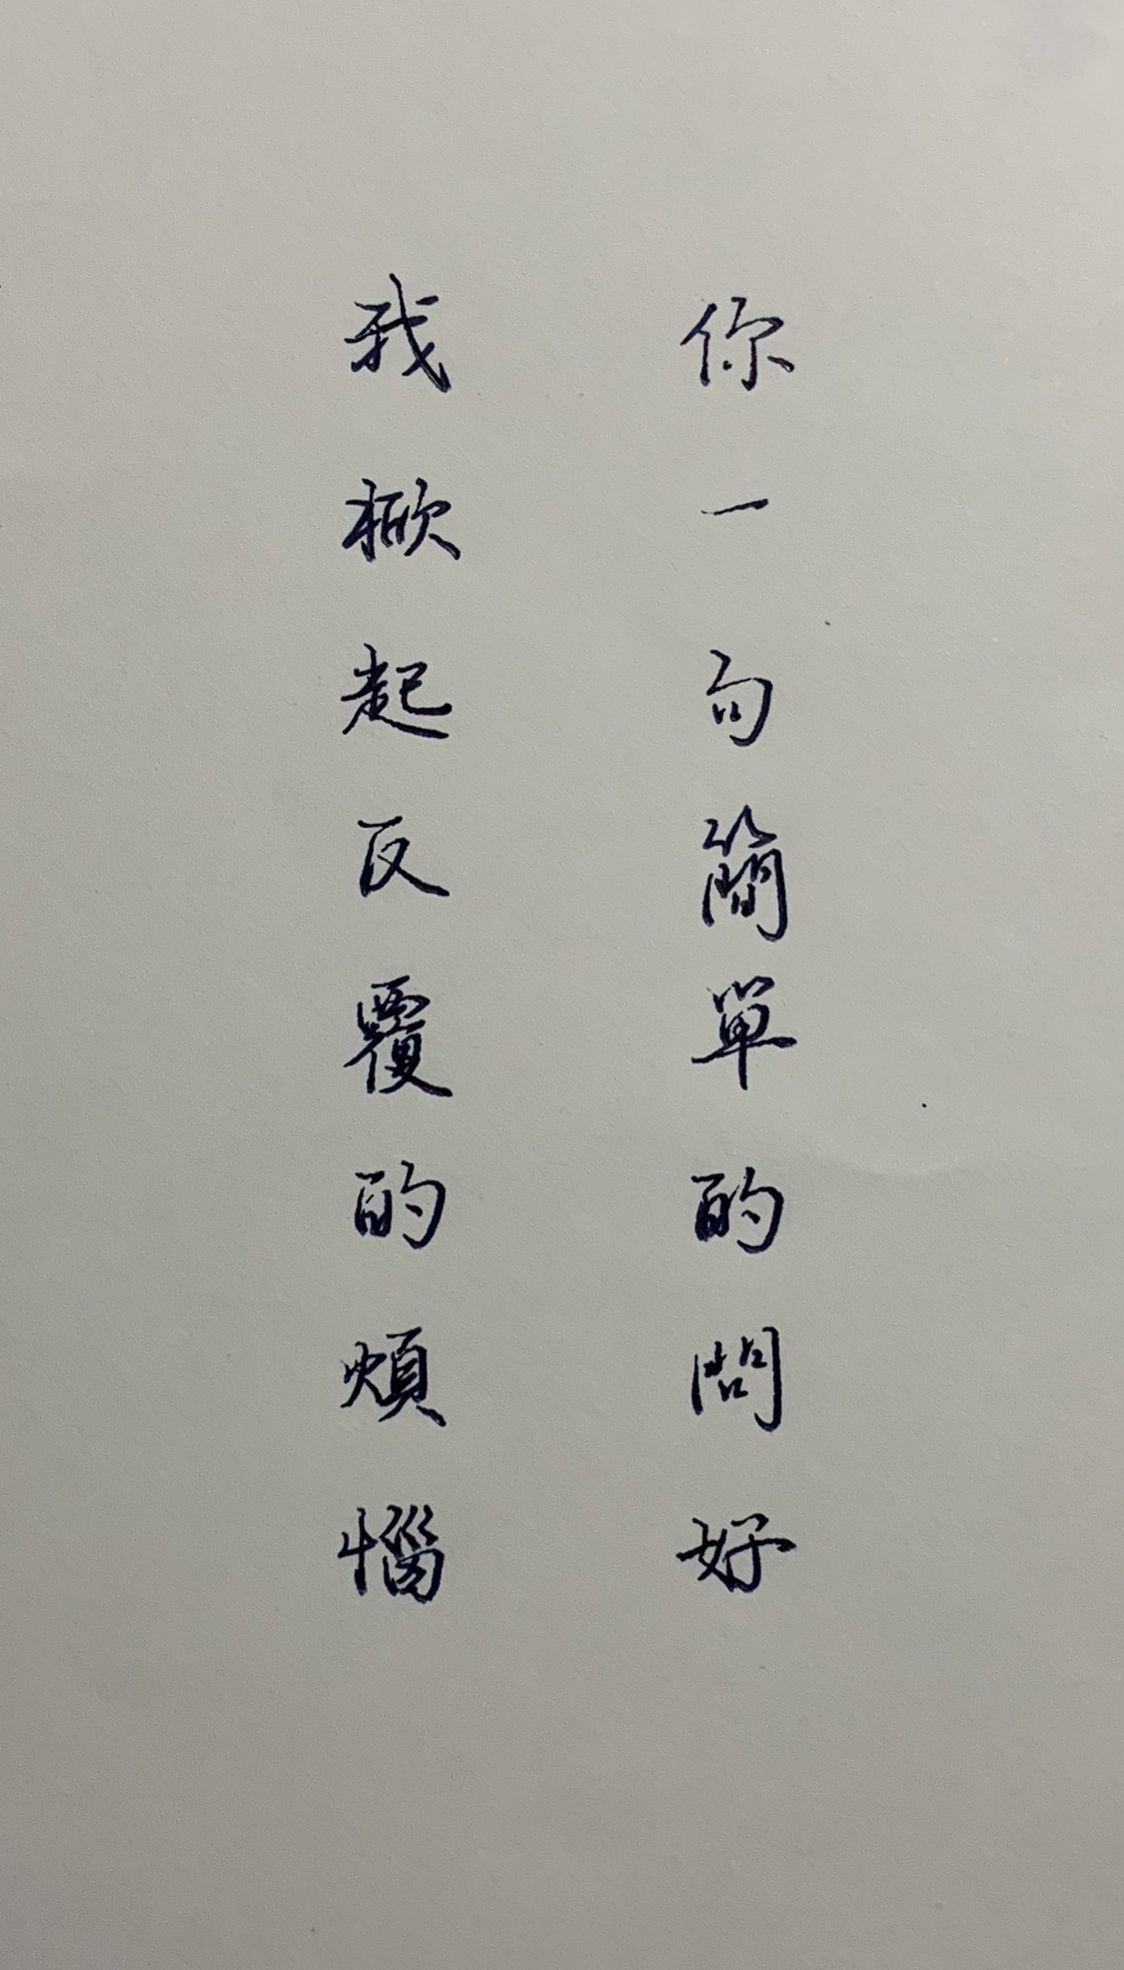 你一句簡單的問好
我掀起反覆的煩惱